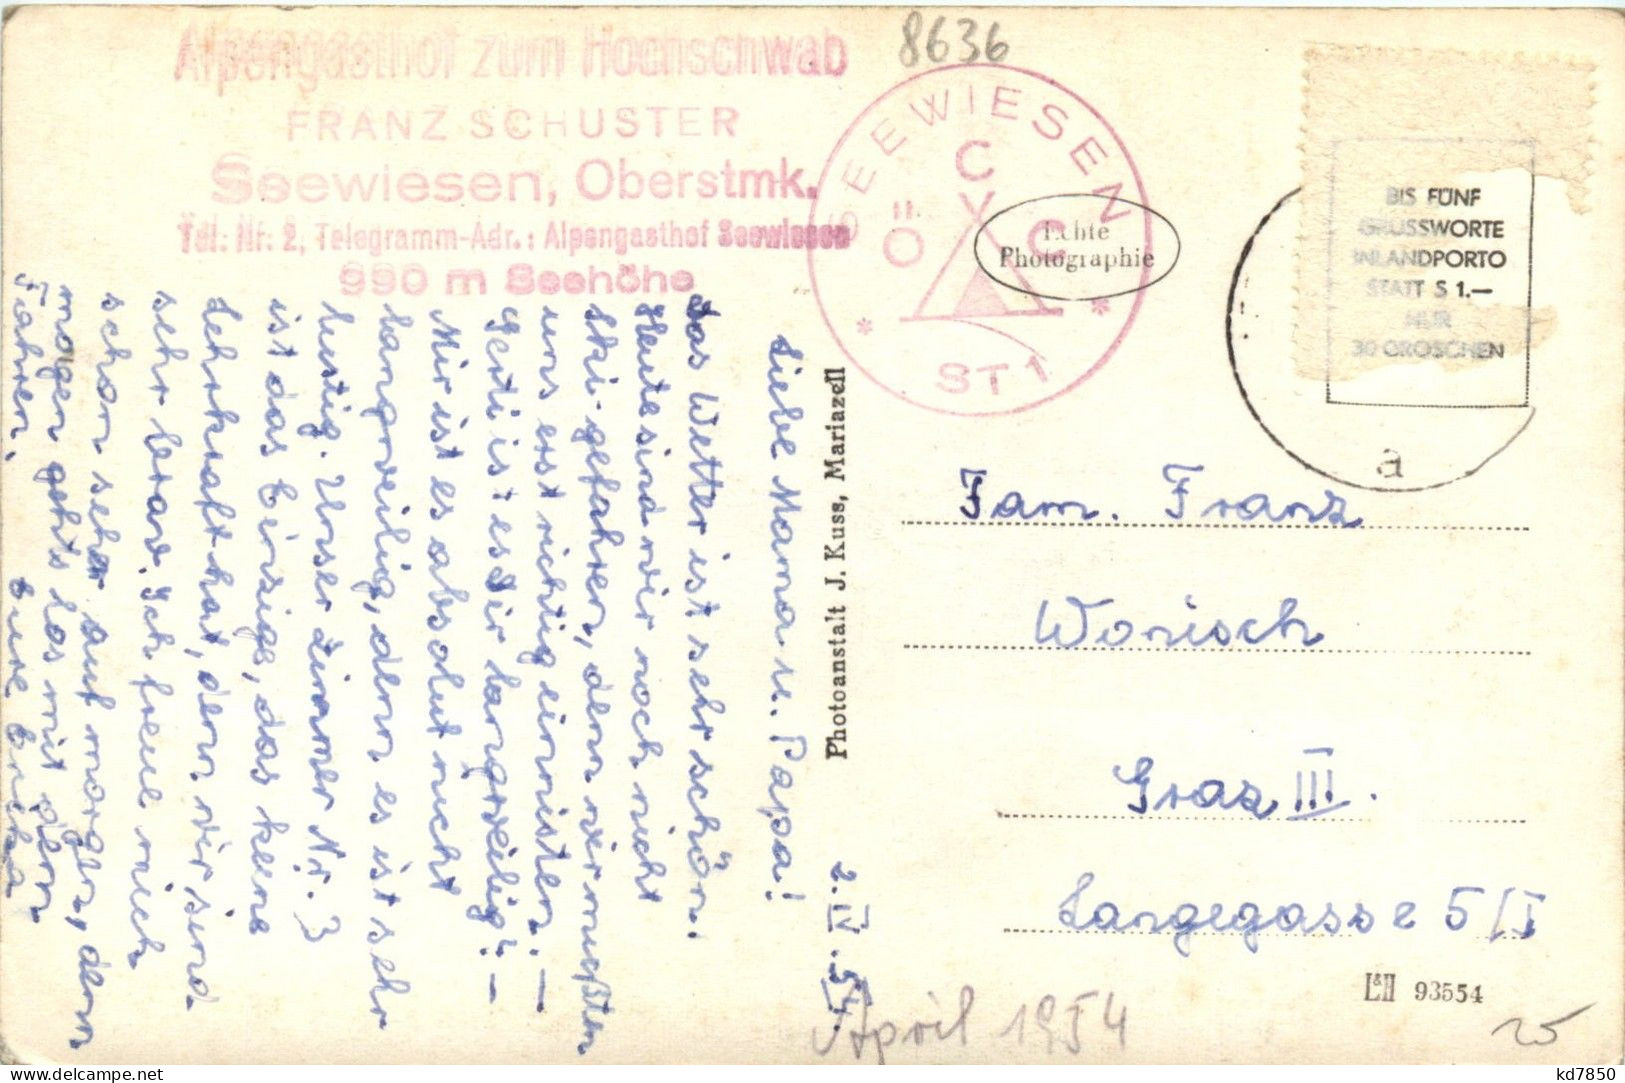 Alpengasthof zum Hochschwab
FRANZ SCHUSTER
Seewiesen, Oberstmk.
Tel. Nr. 2, Telegramm-Adr.: Alpengasthof Seewiesen
990 m Seehöhe
8636
SEEWIESEN
C
Ö Y C
* *
ST 1
Echte
Photographie
BIS FÜNF
GRUSSWORTE
INLANDPORTO
STATT S 1.—
NUR
30 GROSCHEN
a
2. IV. 54.
Liebe Mama u. Pappa!
Das Wetter ist sehr schön.
Heute sind wir noch nicht
Ski-gefahren, denn wir mußten
uns erst richtig einnisten. —
Gerti ist es "Dir langweilig". —
Mir ist es absolut nicht
langweilig, denn es ist sehr
lustig. Unser Zimmer Nr. 3
ist das einzige, das keine
Lehrkraft hat, denn wir sind
sehr brav. Ich freue mich
schon sehr auf morgen, denn
morgen gehts los mit dem
Fahren. Eure Erika
Photoanstalt J. Kuss, Mariazell
Fam. Franz
Wonisch
Graz III.
Langegasse 5/I
L&H 93554
April 1954
25
kd7850